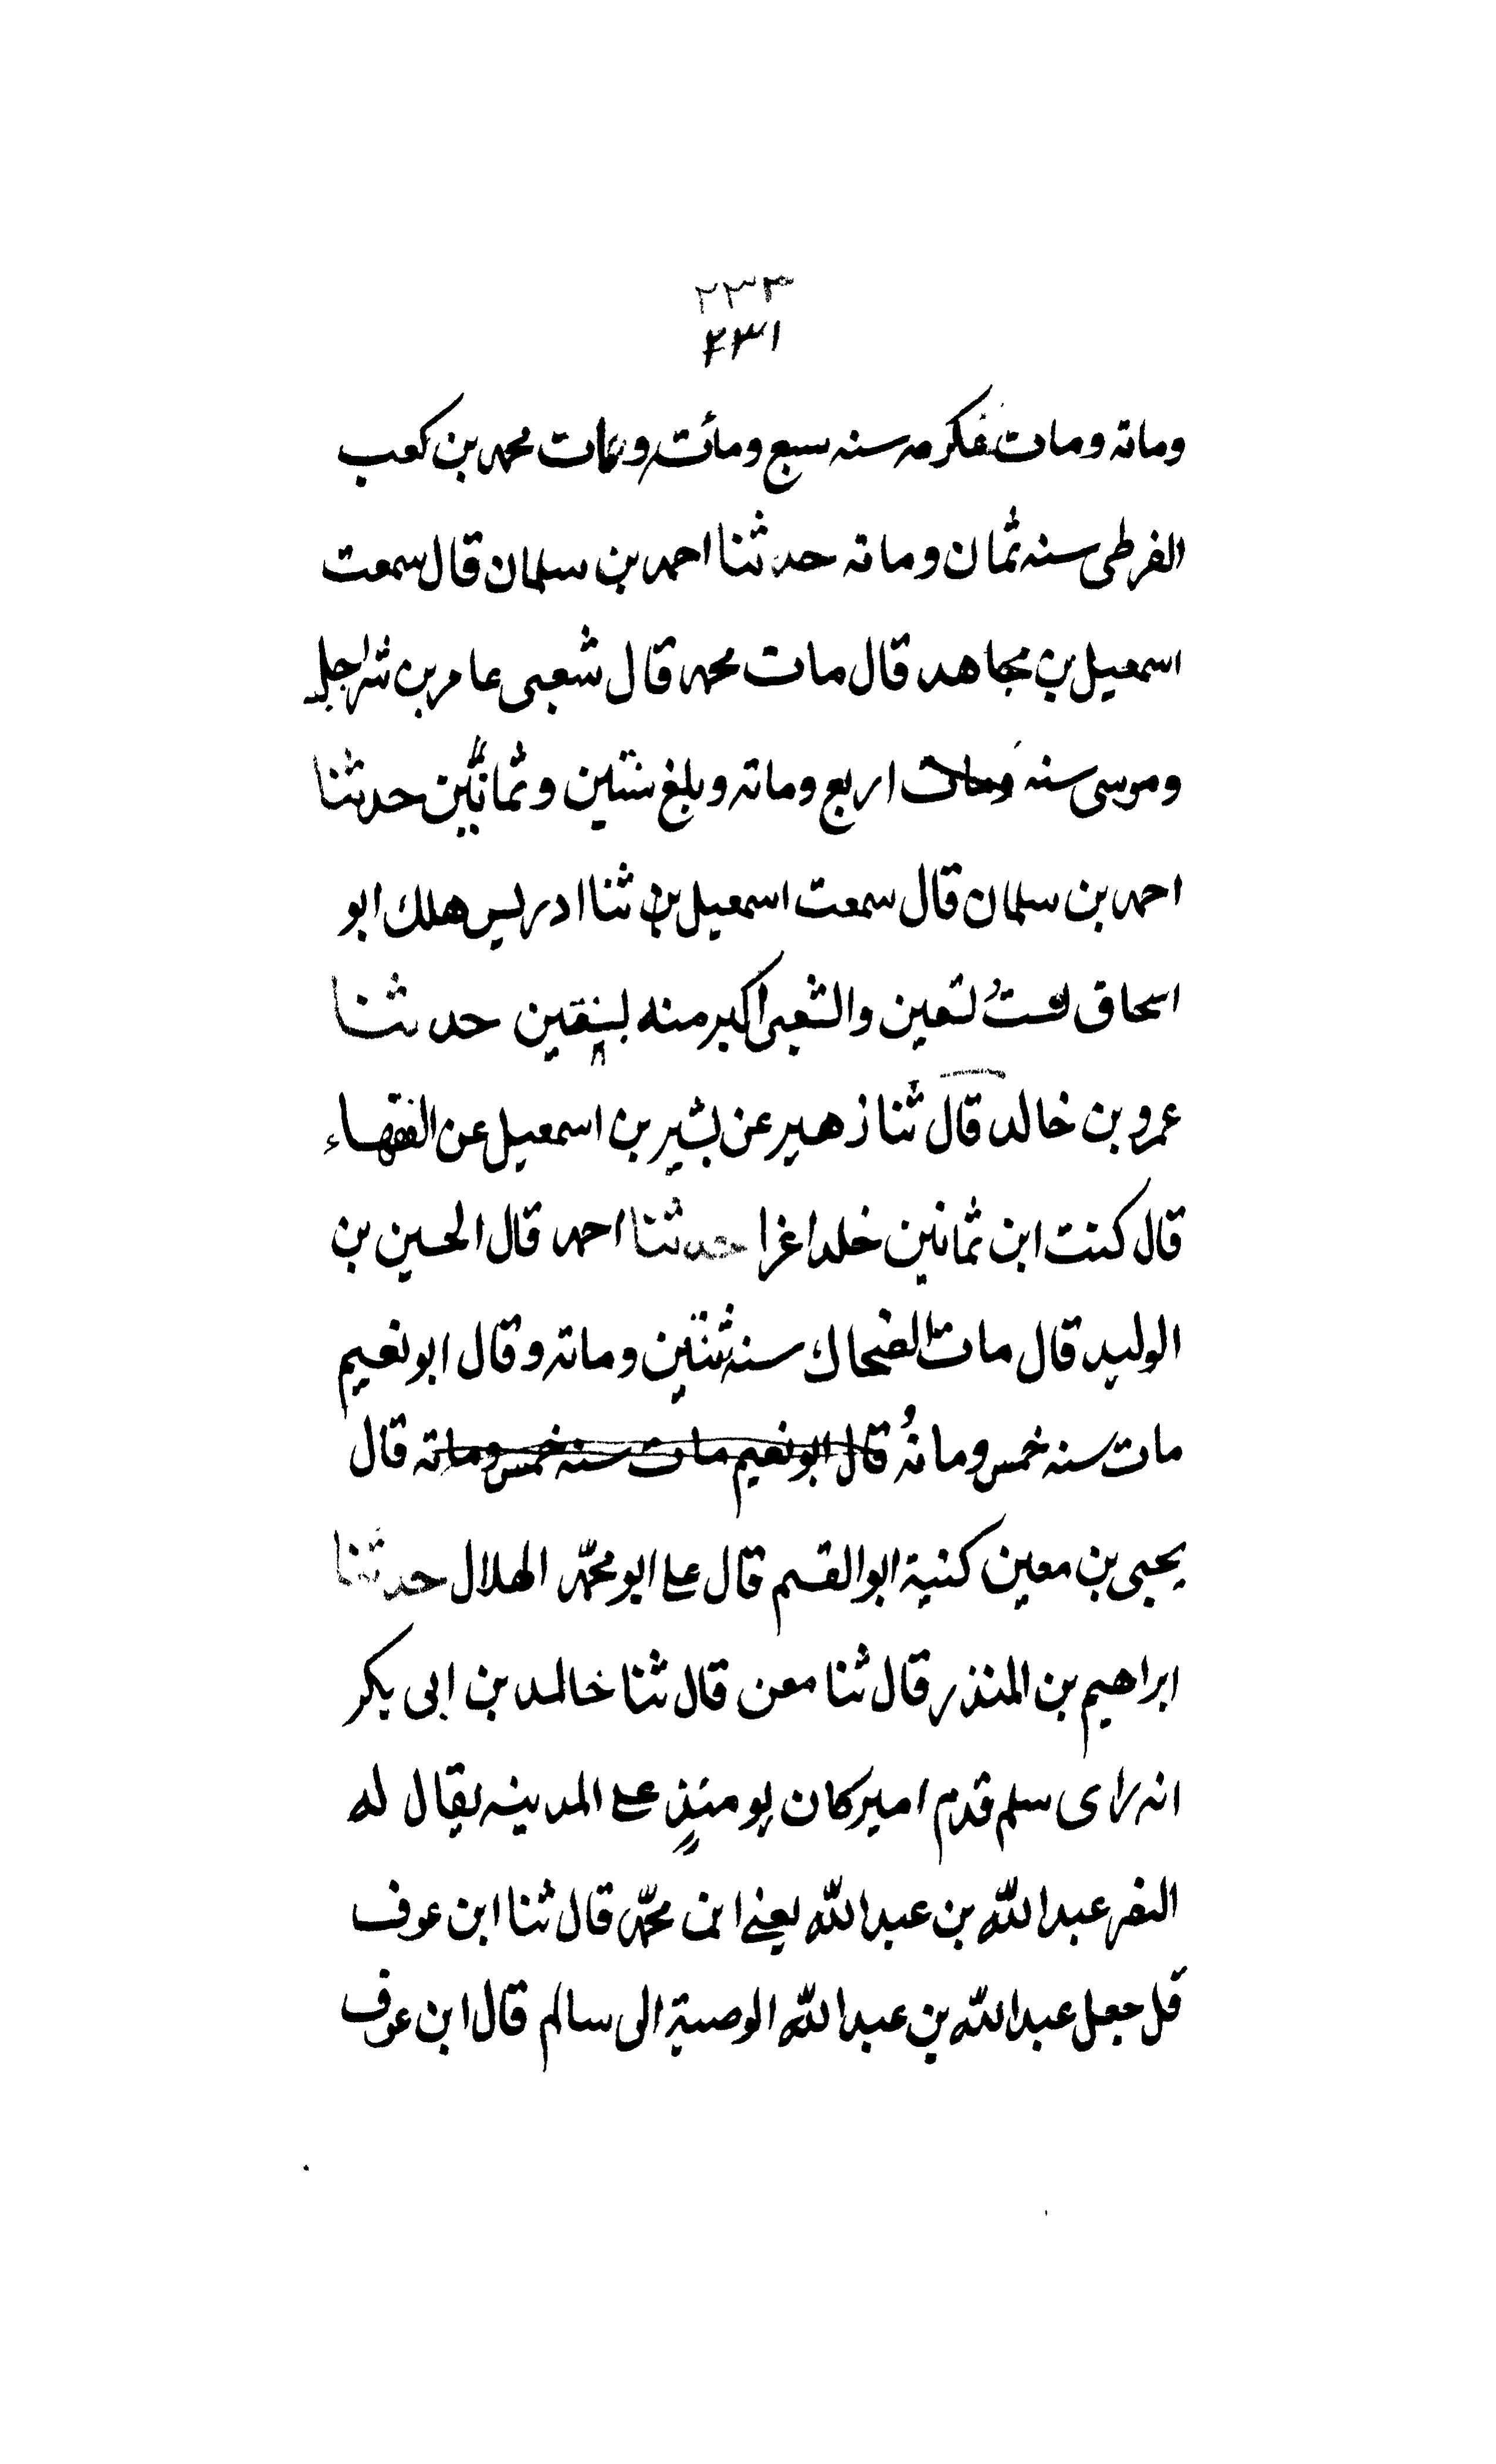 ٢٣٣
٢٣١
وماته ومات عكرمه سنه سبع ومائة ومات محمد بن كعب
الفرطى سنه ثمان وماته حدثنا احمد بن سلمان قال سمعت
اسمعيل بن مجاهد قال مات محمد قال شعبى عامر بن شراجل
وموسى سنه ومات اربع وماته وبلغ سنتين وثمانين حدثنا
احمد بن سلمان قال سمعت اسمعيل بن ثنا ادريس هلك ابو
اسحاق لتعين والشعبى اكبر منه حدثنا
عمرو بن خالد قال ثنا زهير عن بشير بن اسمعيل عن الفقهاء
قال كنت ابن ثمانين خلدا غزا حدثنا احمد قال الحسين بن
الوليد قال مات الضحاك سنه ثنتين وماته وقال ابو نعيم
مات سنه خمس وماته قال ابو نعيم مات سنه خمس وماته قال
يحيى بن معين كنية ابو القسم قال على ابو محمّد الهلال حدثنا
ابراهيم بن المنذر قال ثنا معن قال ثنا خالد بن ابى بكر
انه راى سلم قدم امير كان يومئذٍ على المدينه يقال له
النفر عبد اللّه بن عبد اللّه يعنى ابن محمّد قال ثنا ابن عوف
قل جعل عبد اللّه بن عبد اللّه الوصية الى سالم قال ابن عوف